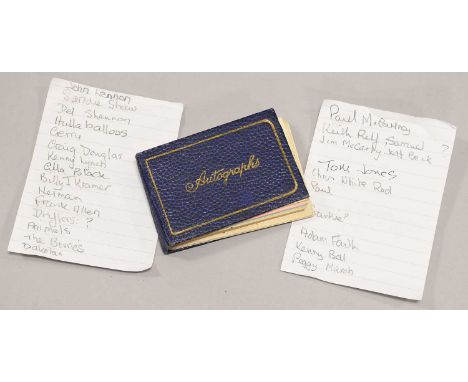 John Lennon
Sandie Shaw
Del Shannon
Hullaballoos
Gerry
Craig Douglas
Kenny Lynch
Cilla Black
Billy J Kramer
Herman
Frank Allen
Drifters ?
Animals
The
Dakotas
Autographs
Paul McCartney
Keith Relf, Samuel ?
Jim McCarty Jeff Beck
Tom Jones
Chris White Rod
Paul
?
Adam Faith
Kenny Ball
Peggy March